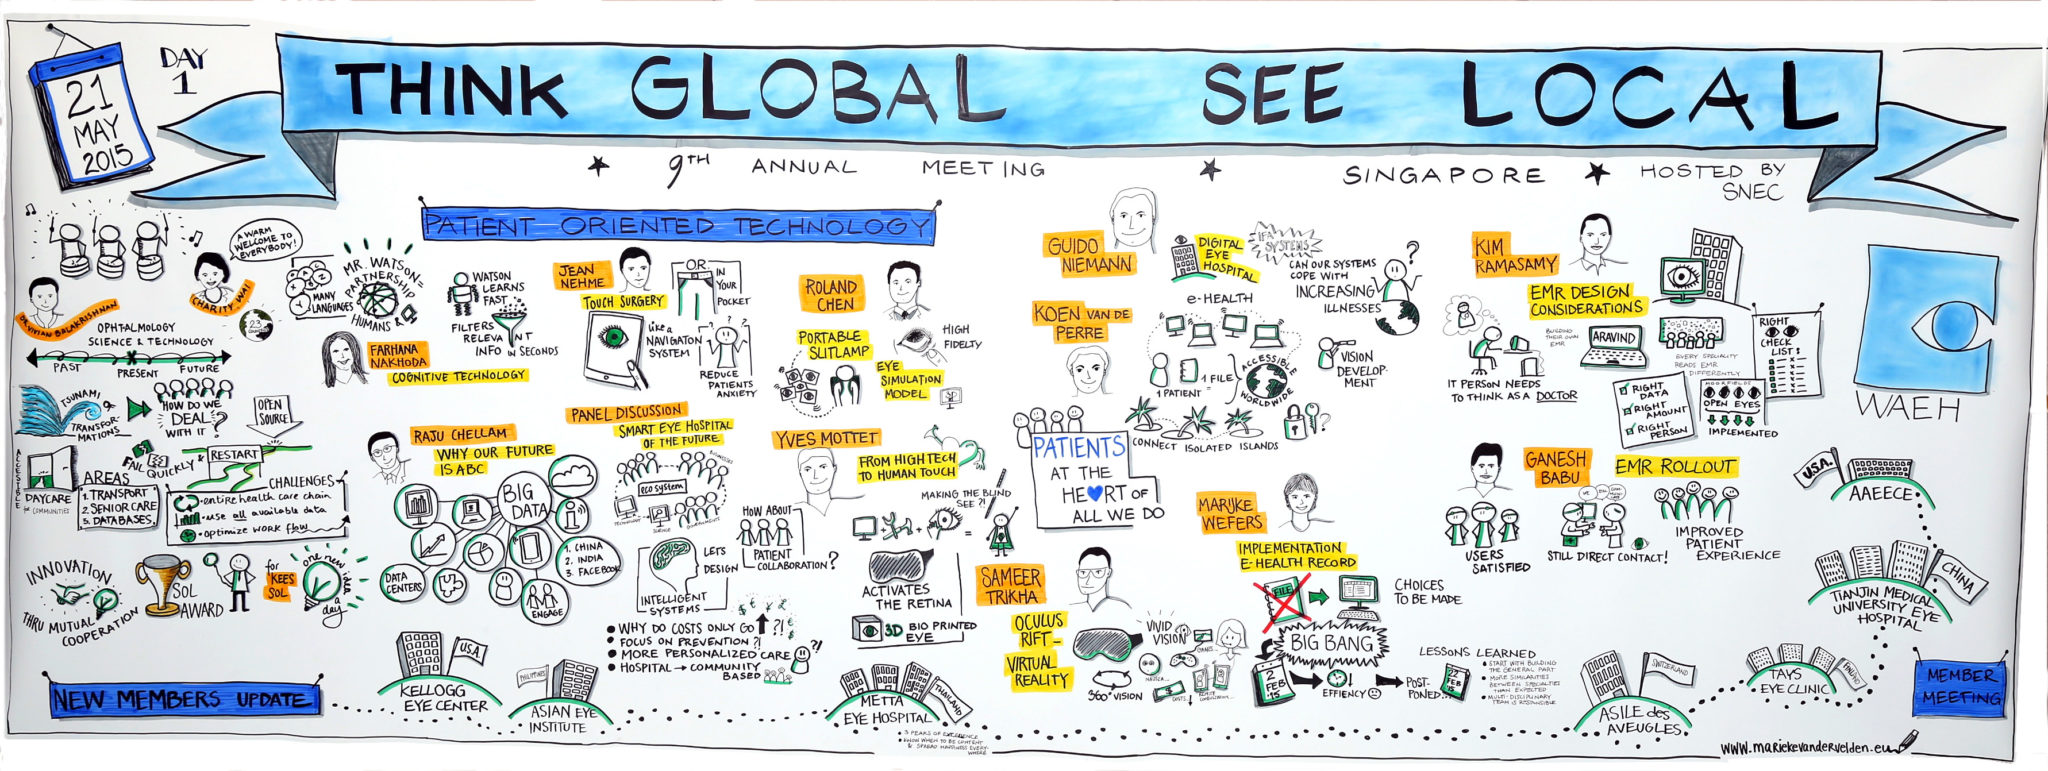 21
MAY
2015
DAY
1
THINK GLOBAL SEE LOCAL
9TH ANNUAL MEETING
SINGAPORE
HOSTED BY
SNEC
A WARM
WELCOME TO
EVERYBODY!
CHARITY WAI
DR VIVIAN BALAKRISHNAN
23
OPHTALMOLOGY
SCIENCE & TECHNOLOGY
PAST
PRESENT
FUTURE
TSUNAMI OF
TRANSFOR-
MATIONS
HOW DO WE
DEAL
WITH IT?
OPEN
SOURCE
FAIL
QUICKLY &
RESTART
ACCESSIBLE
DAYCARE
for COMMUNITIES
AREAS
1. TRANSPORT
2. SENIOR CARE
3. DATABASES.
CHALLENGES
• entire health care chain
• use all available data
• optimize work flow
INNOVATION
THRU MUTUAL
COOPERATION
SOL
AWARD
for
KEES
SOL
one new idea
a
day
NEW MEMBERS UPDATE
PATIENT ORIENTED TECHNOLOGY
MANY
LANGUAGES
MR. WATSON =
PARTNERSHIP
HUMANS &
FARHANA
NAKHODA
COGNITIVE TECHNOLOGY
WATSON
LEARNS
FAST
FILTERS
RELEVANT
INFO IN SECONDS
JEAN
NEHME
TOUCH SURGERY
OR
IN
YOUR
POCKET
like a
NAVIGATION
SYSTEM
REDUCE
PATIENTS
ANXIETY
ROLAND
CHEN
PORTABLE
SLITLAMP
HIGH
FIDELTY
EYE
SIMULATION
MODEL
3D
RAJU CHELLAM
WHY OUR FUTURE
IS ABC
BIG
DATA
1. CHINA
2. INDIA
3. FACEBOOK
DATA
CENTERS
ENGAGE
PANEL DISCUSSION
SMART EYE HOSPITAL
OF THE FUTURE
BUSINESSES
eco system
TECHNOLOGY
SCIENCE
GOVERNMENTS
HOW ABOUT
PATIENT
COLLABORATION?
LET'S
DESIGN
INTELLIGENT
SYSTEMS
• WHY DO COSTS ONLY GO ?!
• FOCUS ON PREVENTION ?!
• MORE PERSONALIZED CARE
• HOSPITAL → COMMUNITY
BASED
YVES MOTTET
FROM HIGH TECH
TO HUMAN TOUCH
MAKING THE BLIND
SEE ?!
ACTIVATES
THE RETINA
3D BIO PRINTED
EYE
U.S.A
KELLOGG
EYE CENTER
PHILIPPINES
ASIAN EYE
INSTITUTE
THAILAND
METTA
EYE HOSPITAL
• 3 PEAKS OF EXCELLENCE
• KNOW WHEN TO BE CONTENT
& SPREAD HAPPINESS EVERY-
WHERE
GUIDO
NIEMANN
DIGITAL
EYE
HOSPITAL
IFA
SYSTEMS
CAN OUR SYSTEMS
COPE WITH
INCREASING
ILLNESSES
?
KOEN VAN DE
PERRE
e-HEALTH
1 PATIENT
=
1 FILE
ACCESSIBLE
WORLDWIDE
VISION
DEVELOP-
MENT
CONNECT ISOLATED ISLANDS
?
PATIENTS
AT THE
HEART OF
ALL WE DO
SAMEER
TRIKHA
OCULUS
RIFT –
VIRTUAL
REALITY
VIVID
VISION
360° VISION
MARIJKE
WEFERS
IMPLEMENTATION
E-HEALTH RECORD
FILE
CHOICES
TO BE MADE
BIG BANG
2
FEB
'15
EFFICIENCY
POST-
PONED...
22
FEB
'15
LESSONS LEARNED
• START WITH BUILDING
THE GENERAL PART
• MORE SIMILARITIES
BETWEEN SPECIALTIES
THAN EXPECTED
• MULTI-DISCIPLINARY
TEAM IS RESPONSIBLE
KIM
RAMASAMY
EMR DESIGN
CONSIDERATIONS
IT PERSON NEEDS
TO THINK AS A DOCTOR
BUILDING
THEIR OWN
EMR
ARAVIND
EVERY SPECIALITY
READS EMR
DIFFERENTLY
RIGHT
CHECK
LIST:
RIGHT
DATA
RIGHT
AMOUNT
RIGHT
PERSON
MOORFIELDS
OPEN EYES
IMPLEMENTED
GANESH
BABU
EMR ROLLOUT
USERS
SATISFIED
STILL DIRECT CONTACT!
IMPROVED
PATIENT
EXPERIENCE
WAEH
U.S.A.
AAEECE
CHINA
TIANJIN MEDICAL
UNIVERSITY EYE
HOSPITAL
FINLAND
TAYS
EYE CLINIC
SWITZERLAND
ASILE des
AVEUGLES
MEMBER
MEETING
www.mariekevandervelden.eu